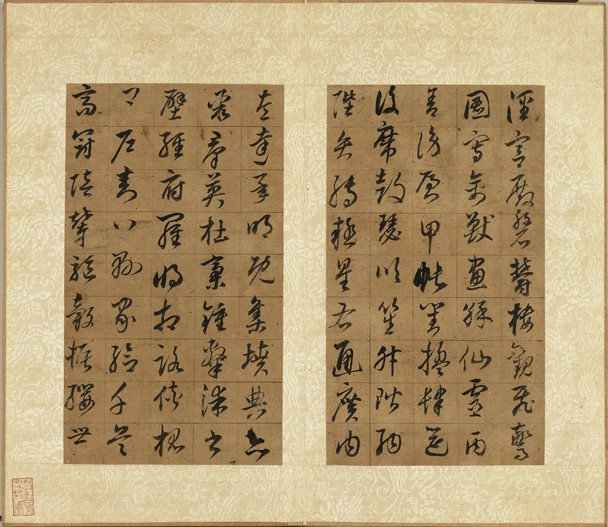 涇宮殿盤鬱樓觀飛驚
圖寫禽獸畫綵仙靈丙
舍傍啓甲帳對楹肆筵
設席鼓瑟吹笙升階納
陛弁轉疑星右通廣內
左達承明既集墳典亦
聚群英杜稾鍾隸漆書
壁經府羅將相路俠槐
卿戶封八縣家給千兵
高冠陪輦驅轂振纓世